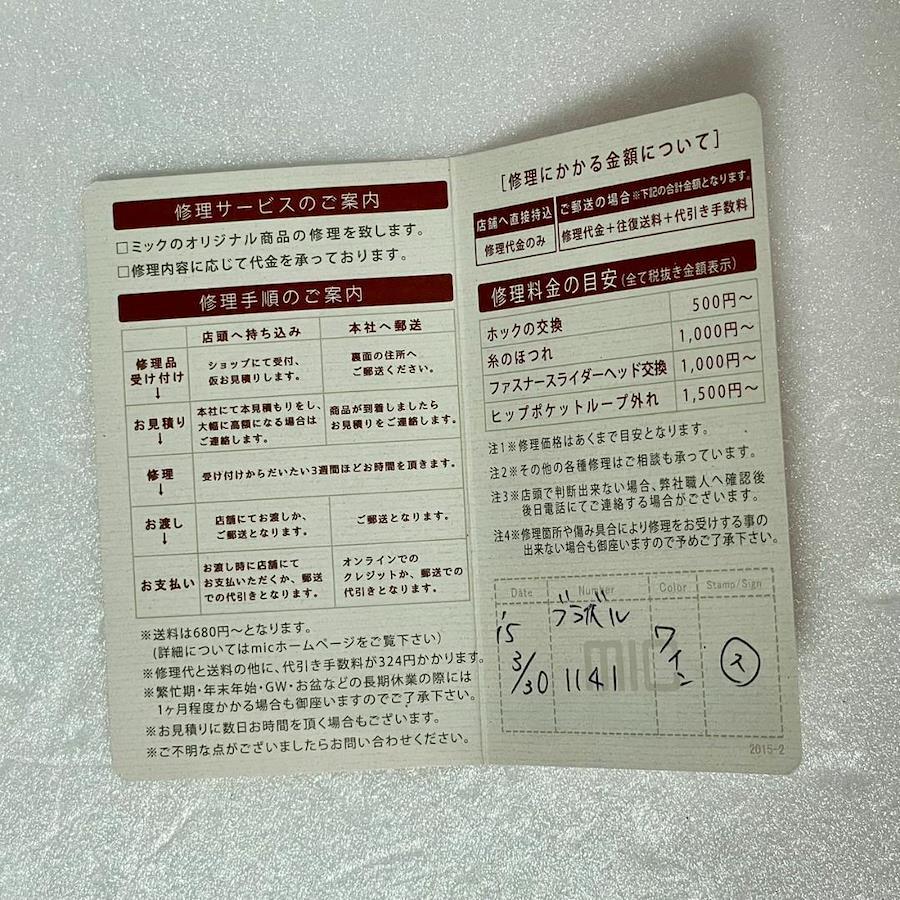 修理サービスのご案内
□ミックのオリジナル商品の修理を致します。
□修理内容に応じて代金を承っております。
修理手順のご案内
店頭へ持ち込み
本社へ郵送
修理品
受け付け
↓
ショップにて受付、
仮お見積りします。
裏面の住所へ
ご郵送ください。
お見積り
↓
本社にて本見積もりをし、
大幅に高額になる場合は
ご連絡します。
商品が到着しましたら
お見積りをご連絡します。
修理
↓
受け付けからだいたい3週間ほどお時間を頂きます。
お渡し
↓
店舗にてお渡しか、
ご郵送となります。
ご郵送となります。
お支払い
お渡し時に店舗にて
お支払いただくか、郵送
での代引きとなります。
オンラインでの
クレジットか、郵送での
代引きとなります。
※送料は680円～となります。
(詳細についてはmicホームページをご覧下さい)
※修理代と送料の他に、代引き手数料が324円かかります。
※繁忙期・年末年始・GW・お盆などの長期休業の際には
1ヶ月程度かかる場合も御座いますのでご了承下さい。
※お見積りに数日お時間を頂く場合もございます。
※ご不明な点がございましたらお問い合わせください。
[修理にかかる金額について]
店舗へ直接持込
ご郵送の場合 ※下記の合計金額となります。
修理代金のみ
修理代金＋往復送料＋代引き手数料
修理料金の目安(全て税抜き金額表示)
ホックの交換 500円～
糸のほつれ 1,000円～
ファスナースライダーヘッド交換 1,000円～
ヒップポケットループ外れ 1,500円～
注1※修理価格はあくまで目安となります。
注2※その他の各種修理はご相談も承っています。
注3※店頭で判断出来ない場合、弊社職人へ確認後
後日電話にてご連絡する場合がございます。
注4※修理箇所や傷み具合により修理をお受けする事の
出来ない場合も御座いますので予めご了承下さい。
Date Number Color Stamp/Sign
'15
3/30
ブラボル
1141
ワイン
mic
2015-2